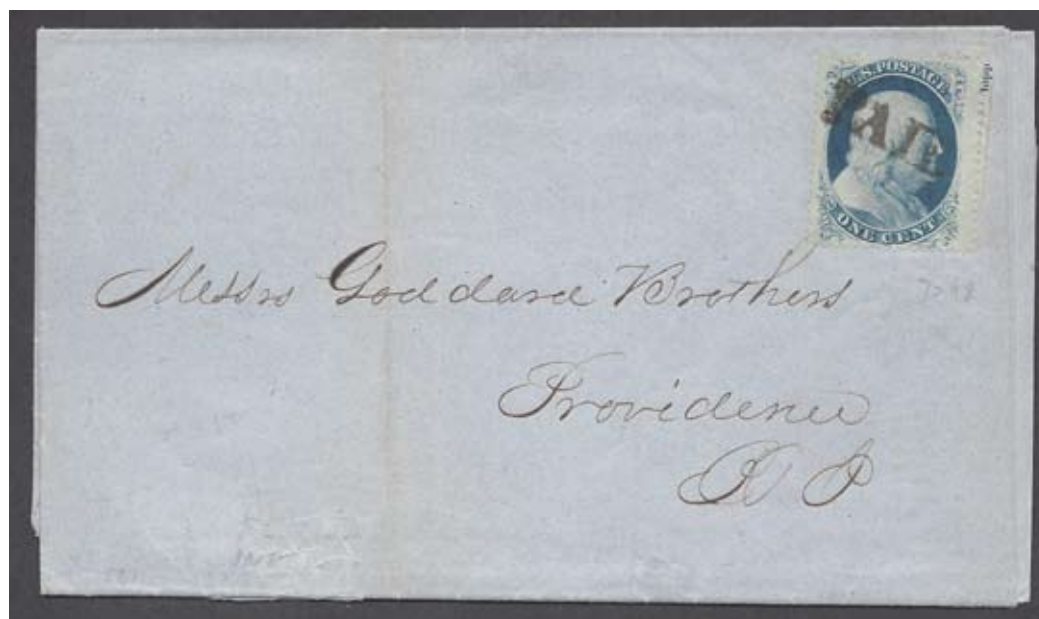 U.S. POSTAGE
PAID
ONE CENT
Messrs Goddard Brothers
Providence
R I